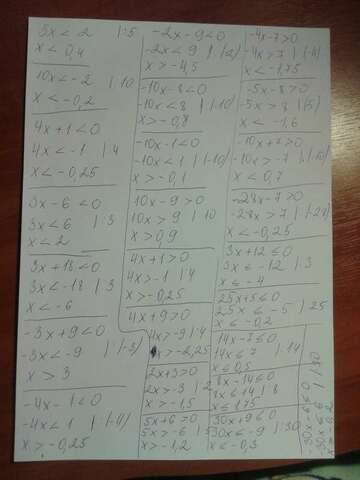 5x < 2 | :5
x < 0,4
10x < -2 | 10
x < -0,2
4x+1 < 0
4x < -1 | 4
x < -0,25
3x-6 < 0
3x < 6 | 3
x < 2
3x+18 < 0
3x < -18 | 3
x < -6
-3x+9 < 0
-3x < -9 | (-3)
x > 3
-4x-1 < 0
-4x < 1 | (-4)
x > -0,25
-2x-9 < 0
-2x < 9 | (-2)
x > -4,5
-10x-8 < 0
-10x < 8 | (-10)
x > -0,8
-10x-1 < 0
-10x < 1 | (-10)
x > -0,1
10x-9 > 0
10x > 9 | 10
x > 0,9
4x+1 > 0
4x > -1 | 4
x > -0,25
4x+9 > 0
4x > -9 | 4
x > -2,25
2x+3 > 0
2x > -3 | 2
x > -1,5
5x+6 > 0
5x > -6 | 5
x > -1,2
-4x-7 > 0
-4x > 7 | (-4)
x < -1,75
-5x-8 > 0
-5x > 8 | (5)
x < -1,6
-10x+7 > 0
-10x > -7
x < 0,7
-28x-7 > 0
-28x > 7
x < -0,25
3x+12 ≤ 0
3x ≤ -12 | 3
x ≤ -4
25x+5 ≤ 0
25x ≤ -5 | 25
x ≤ -0,2
14x-7 ≤ 0
14x ≤ 7 | 14
x ≤ 0,5
8x-14 ≤ 0
8x ≤ 14 | 8
x ≤ 1,75
30x+9 ≤ 0
30x ≤ -9 | 30
x ≤ -0,3